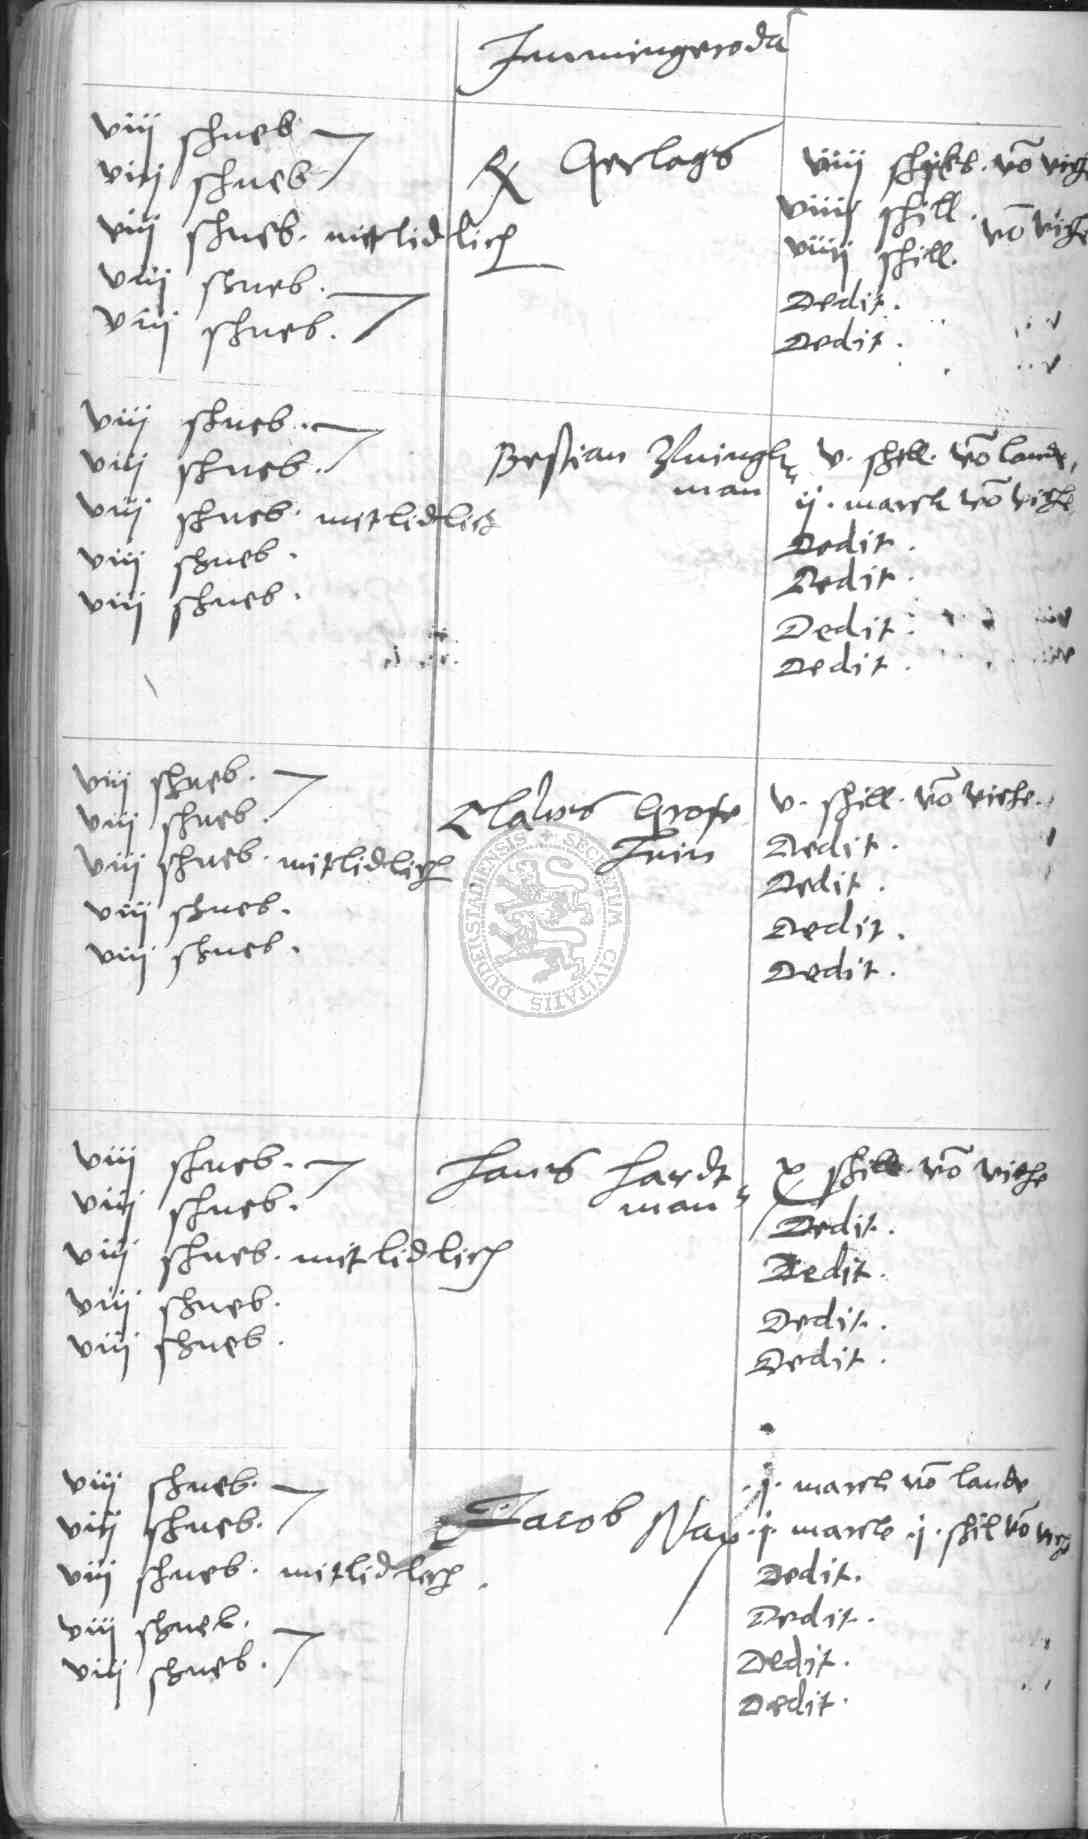 Immingeroda
viij schneb
viij schneb
viij schneb. mitlidlich
viij schneb.
viij schneb.
Gerlags
viiij
viiij schill. vō viehe
viiij schill.
Dedit.
Dedit.
viij schneb.
viij schneb.
viij schneb. mitlidlich
viij schneb.
viij schneb.
Bestian
man
v. schill. vō lande,
ij. marck vō viehe
Dedit.
Dedit.
Dedit.
Dedit.
viij schneb.
viij schneb.
viij schneb. mitlidlich
viij schneb.
viij schneb.
Claws Grose
v. schill. vō viehe.
Dedit.
Dedit.
Dedit.
Dedit.
SECRETUM CIVITATIS DUDERSTADIENSIS
viij schneb.
viij schneb.
viij schneb. mitlidlich
viij schneb.
viij schneb.
Hans Hardt
man
x schill. vō viehe
Dedit.
Dedit.
Dedit.
Dedit.
viij schneb.
viij schneb.
viij schneb. mitlidlich.
viij schneb.
viij schneb.
Jacob
.j. marck vō lande
.j. marck .j. schil vō
Dedit.
Dedit.
Dedit.
Dedit.